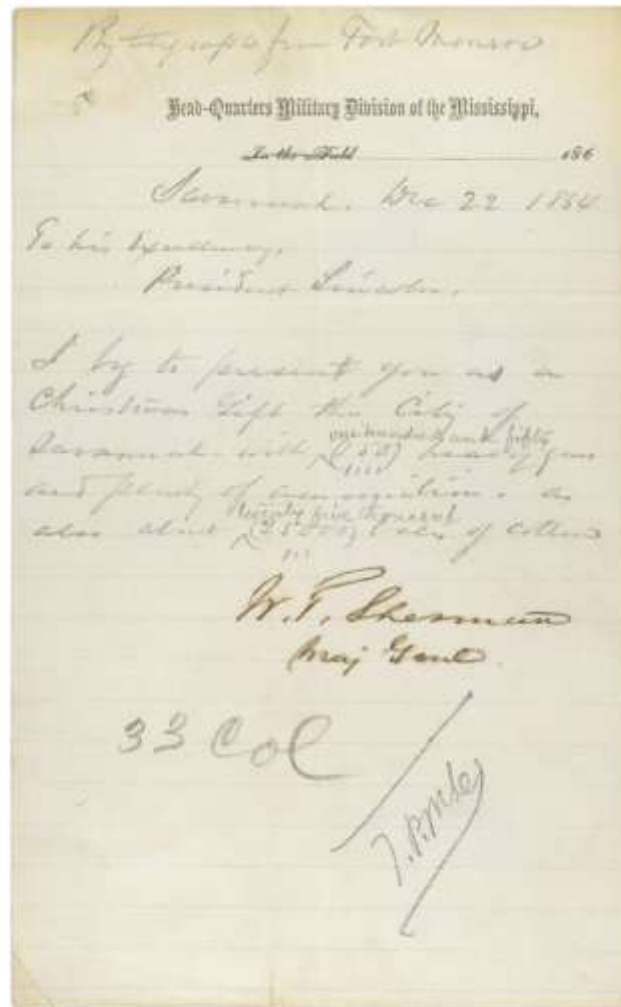 By telegraph from Fort Monroe
Head-Quarters Military Division of the Mississippi,
In the Field 186
Savannah. Dec 22 1864
To his Excellency,
President Lincoln.
I beg to present you as a
Christmas Gift the City of
one hundred and fifty
Savannah with (150) heavy guns
and plenty of ammunition. as
twenty five thousand
also about (25000) bales of cotton
W. T. Sherman
Maj Genl
33 Col